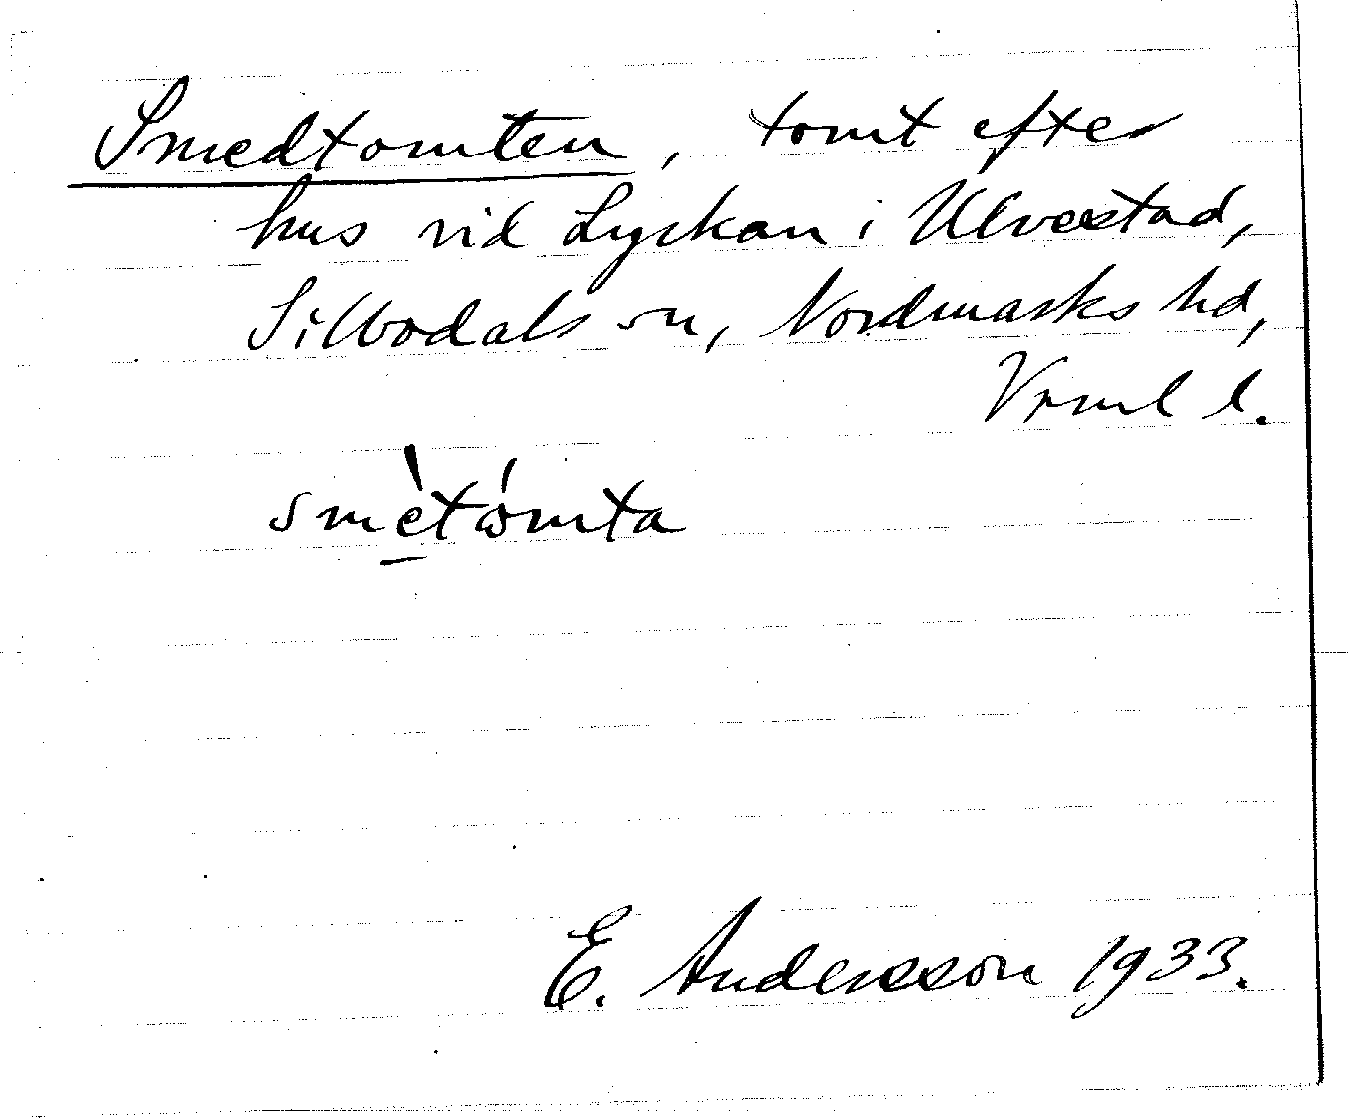 Smedtomten, tomt efter
hus vid Lyckan i Ulvestad,
Silbodals sn, Nordmarks hd,
Vrml l.
smètómta
E. Andersson 1933.